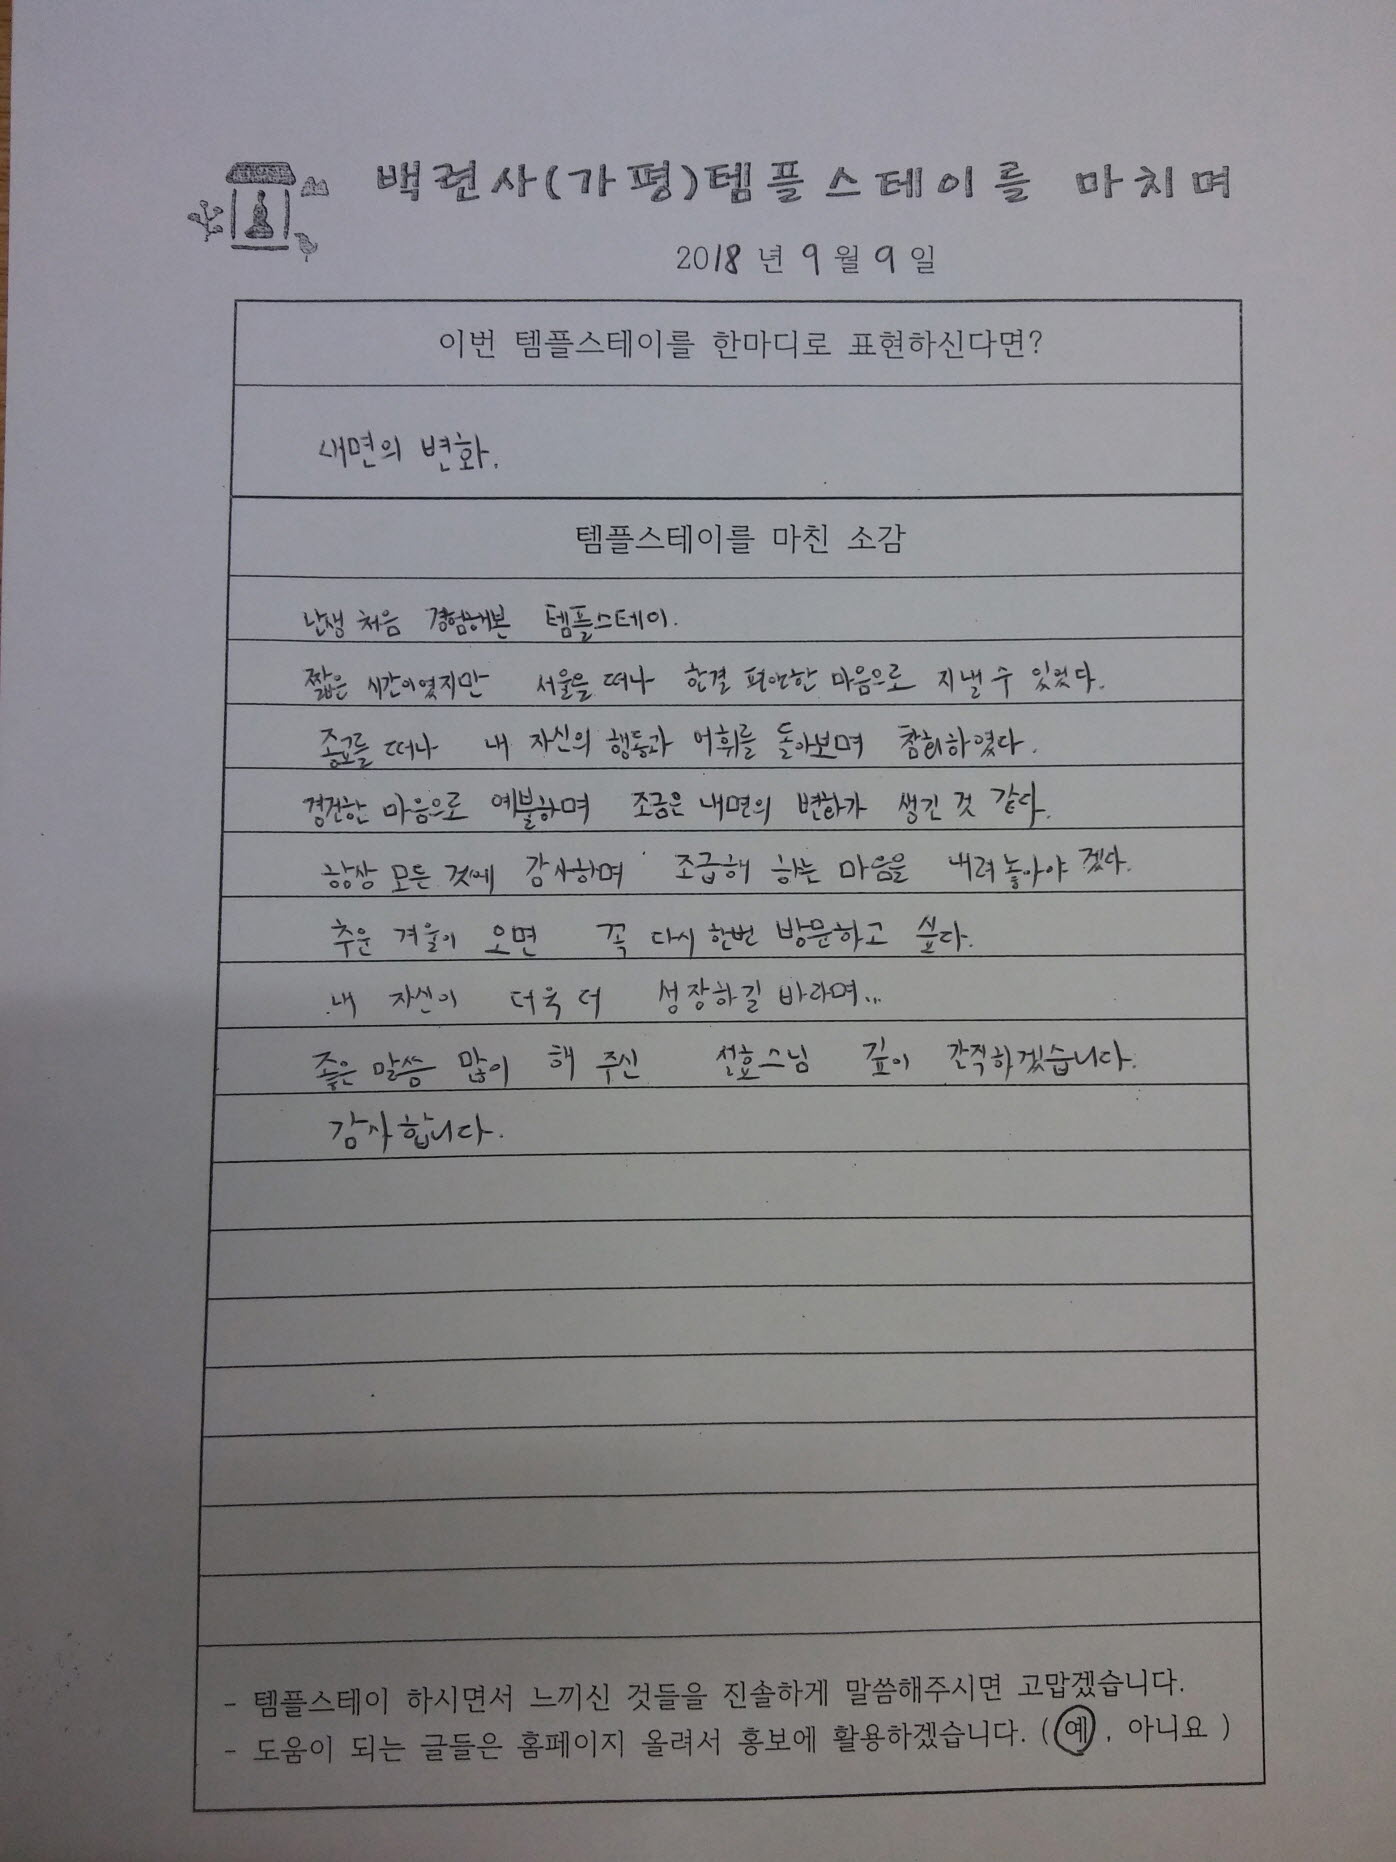 백련사(가평)템플스테이를 마치며
2018년 9월 9일
이번 템플스테이를 한마디로 표현하신다면?
내면의 변화.
템플스테이를 마친 소감
난생 처음 경험해본 템플스테이.
짧은 시간이였지만 서울을 떠나 한결 편안한 마음으로 지낼 수 있었다.
종교를 떠나 내 자신의 행동과 어휘를 돌아보며 참회하였다.
경건한 마음으로 예불하며 조금은 내면의 변화가 생긴 것 같다.
항상 모든 것에 감사하며 조급해 하는 마음을 내려놓아야 겠다.
추운 겨울이 오면 꼭 다시 한번 방문하고 싶다.
내 자신이 더욱 더 성장하길 바라며...
좋은 말씀 많이 해 주신 선효스님 깊이 간직하겠습니다.
감사합니다.
- 템플스테이 하시면서 느끼신 것들을 진솔하게 말씀해주시면 고맙겠습니다.
- 도움이 되는 글들은 홈페이지 올려서 홍보에 활용하겠습니다. ( 예 , 아니요 )